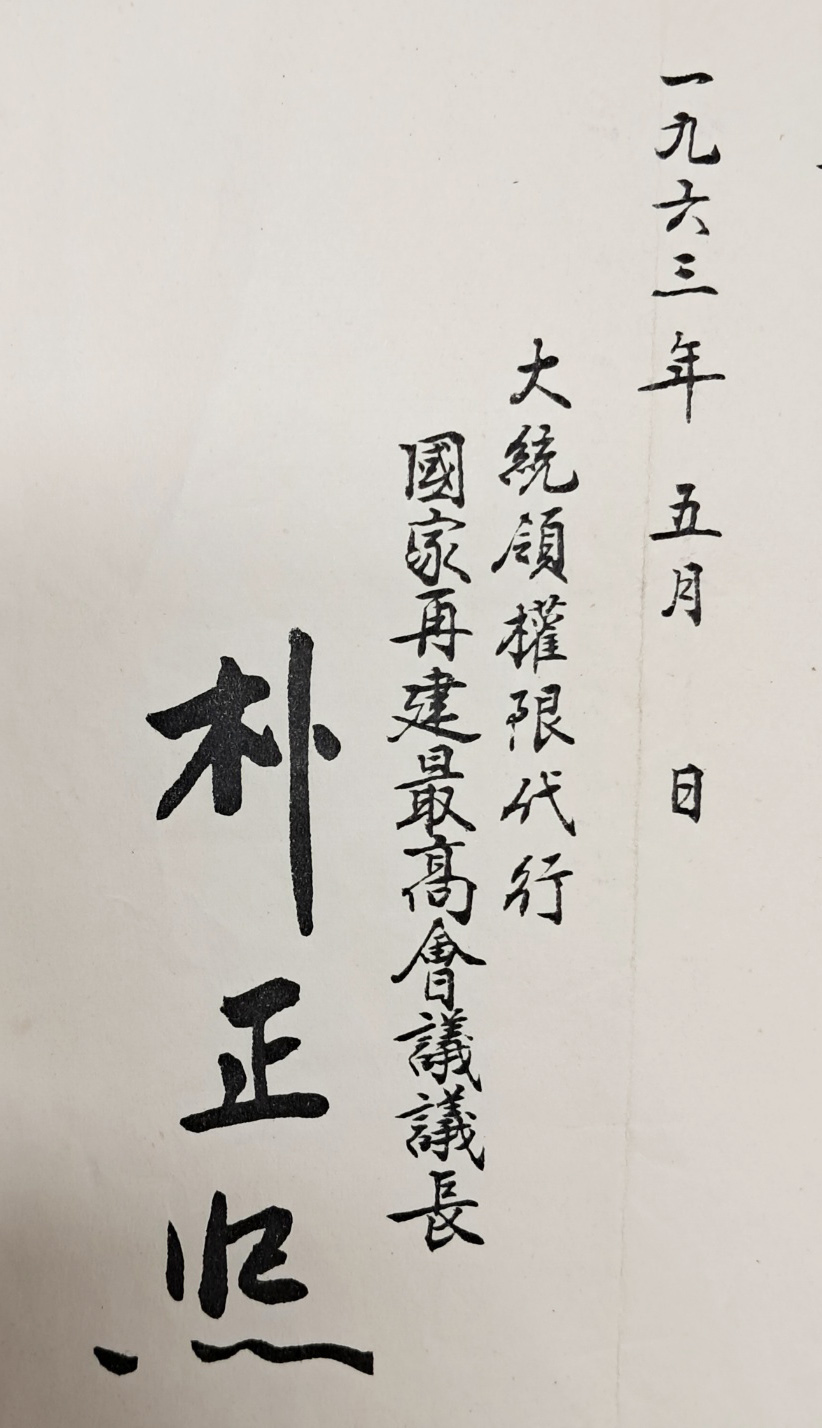 一九六三年 五月 日
大統領權限代行
國家再建最高會議議長
朴正熙